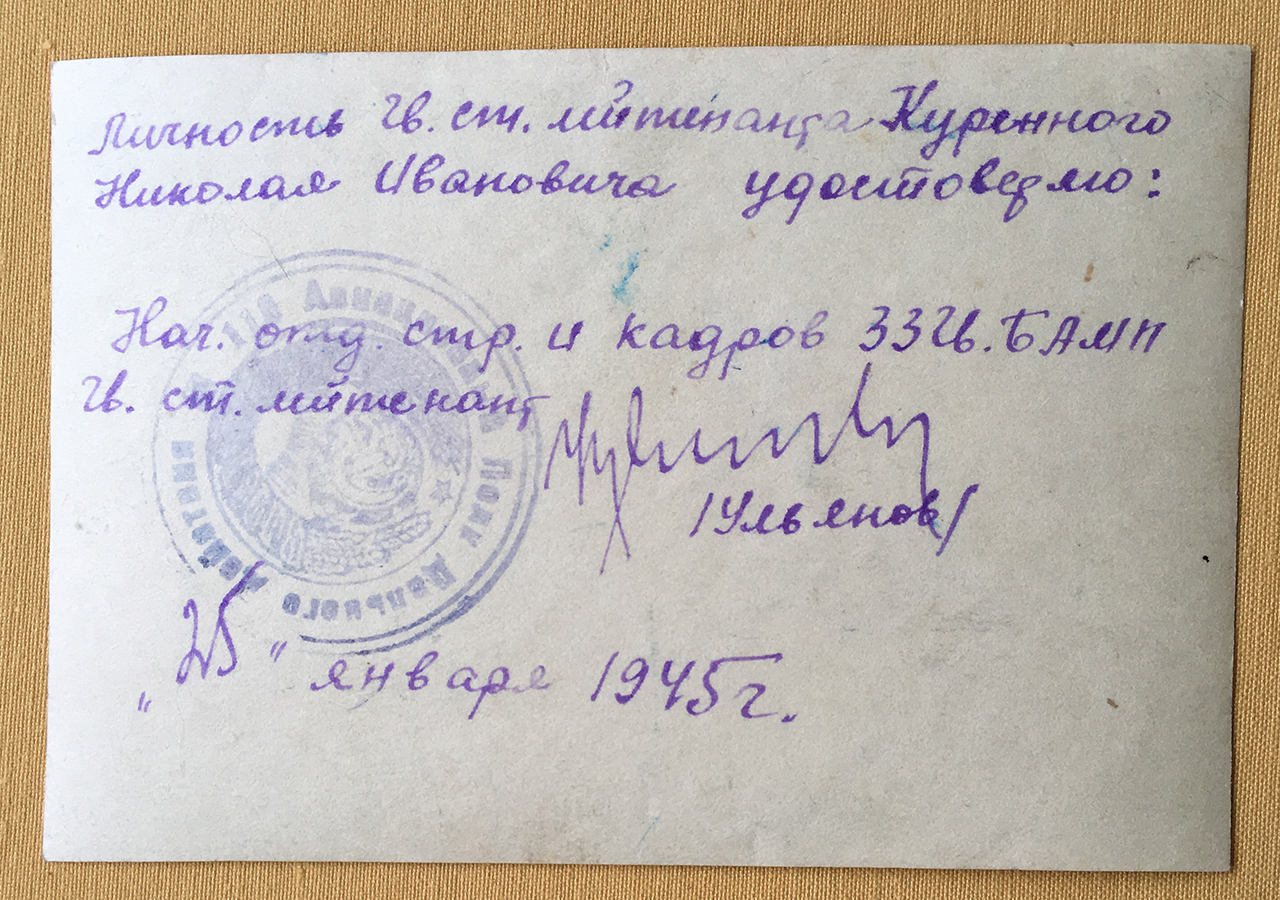 Личность Гв. ст. лейтенанта Куренного
Николая Ивановича удостоверяю:
Нач. отд. стр. и кадров 33 Гв. БАМП
Гв. ст. лейтенант
/Ульянов/
"25" января 1945 г.
Полк Дальнего Действия